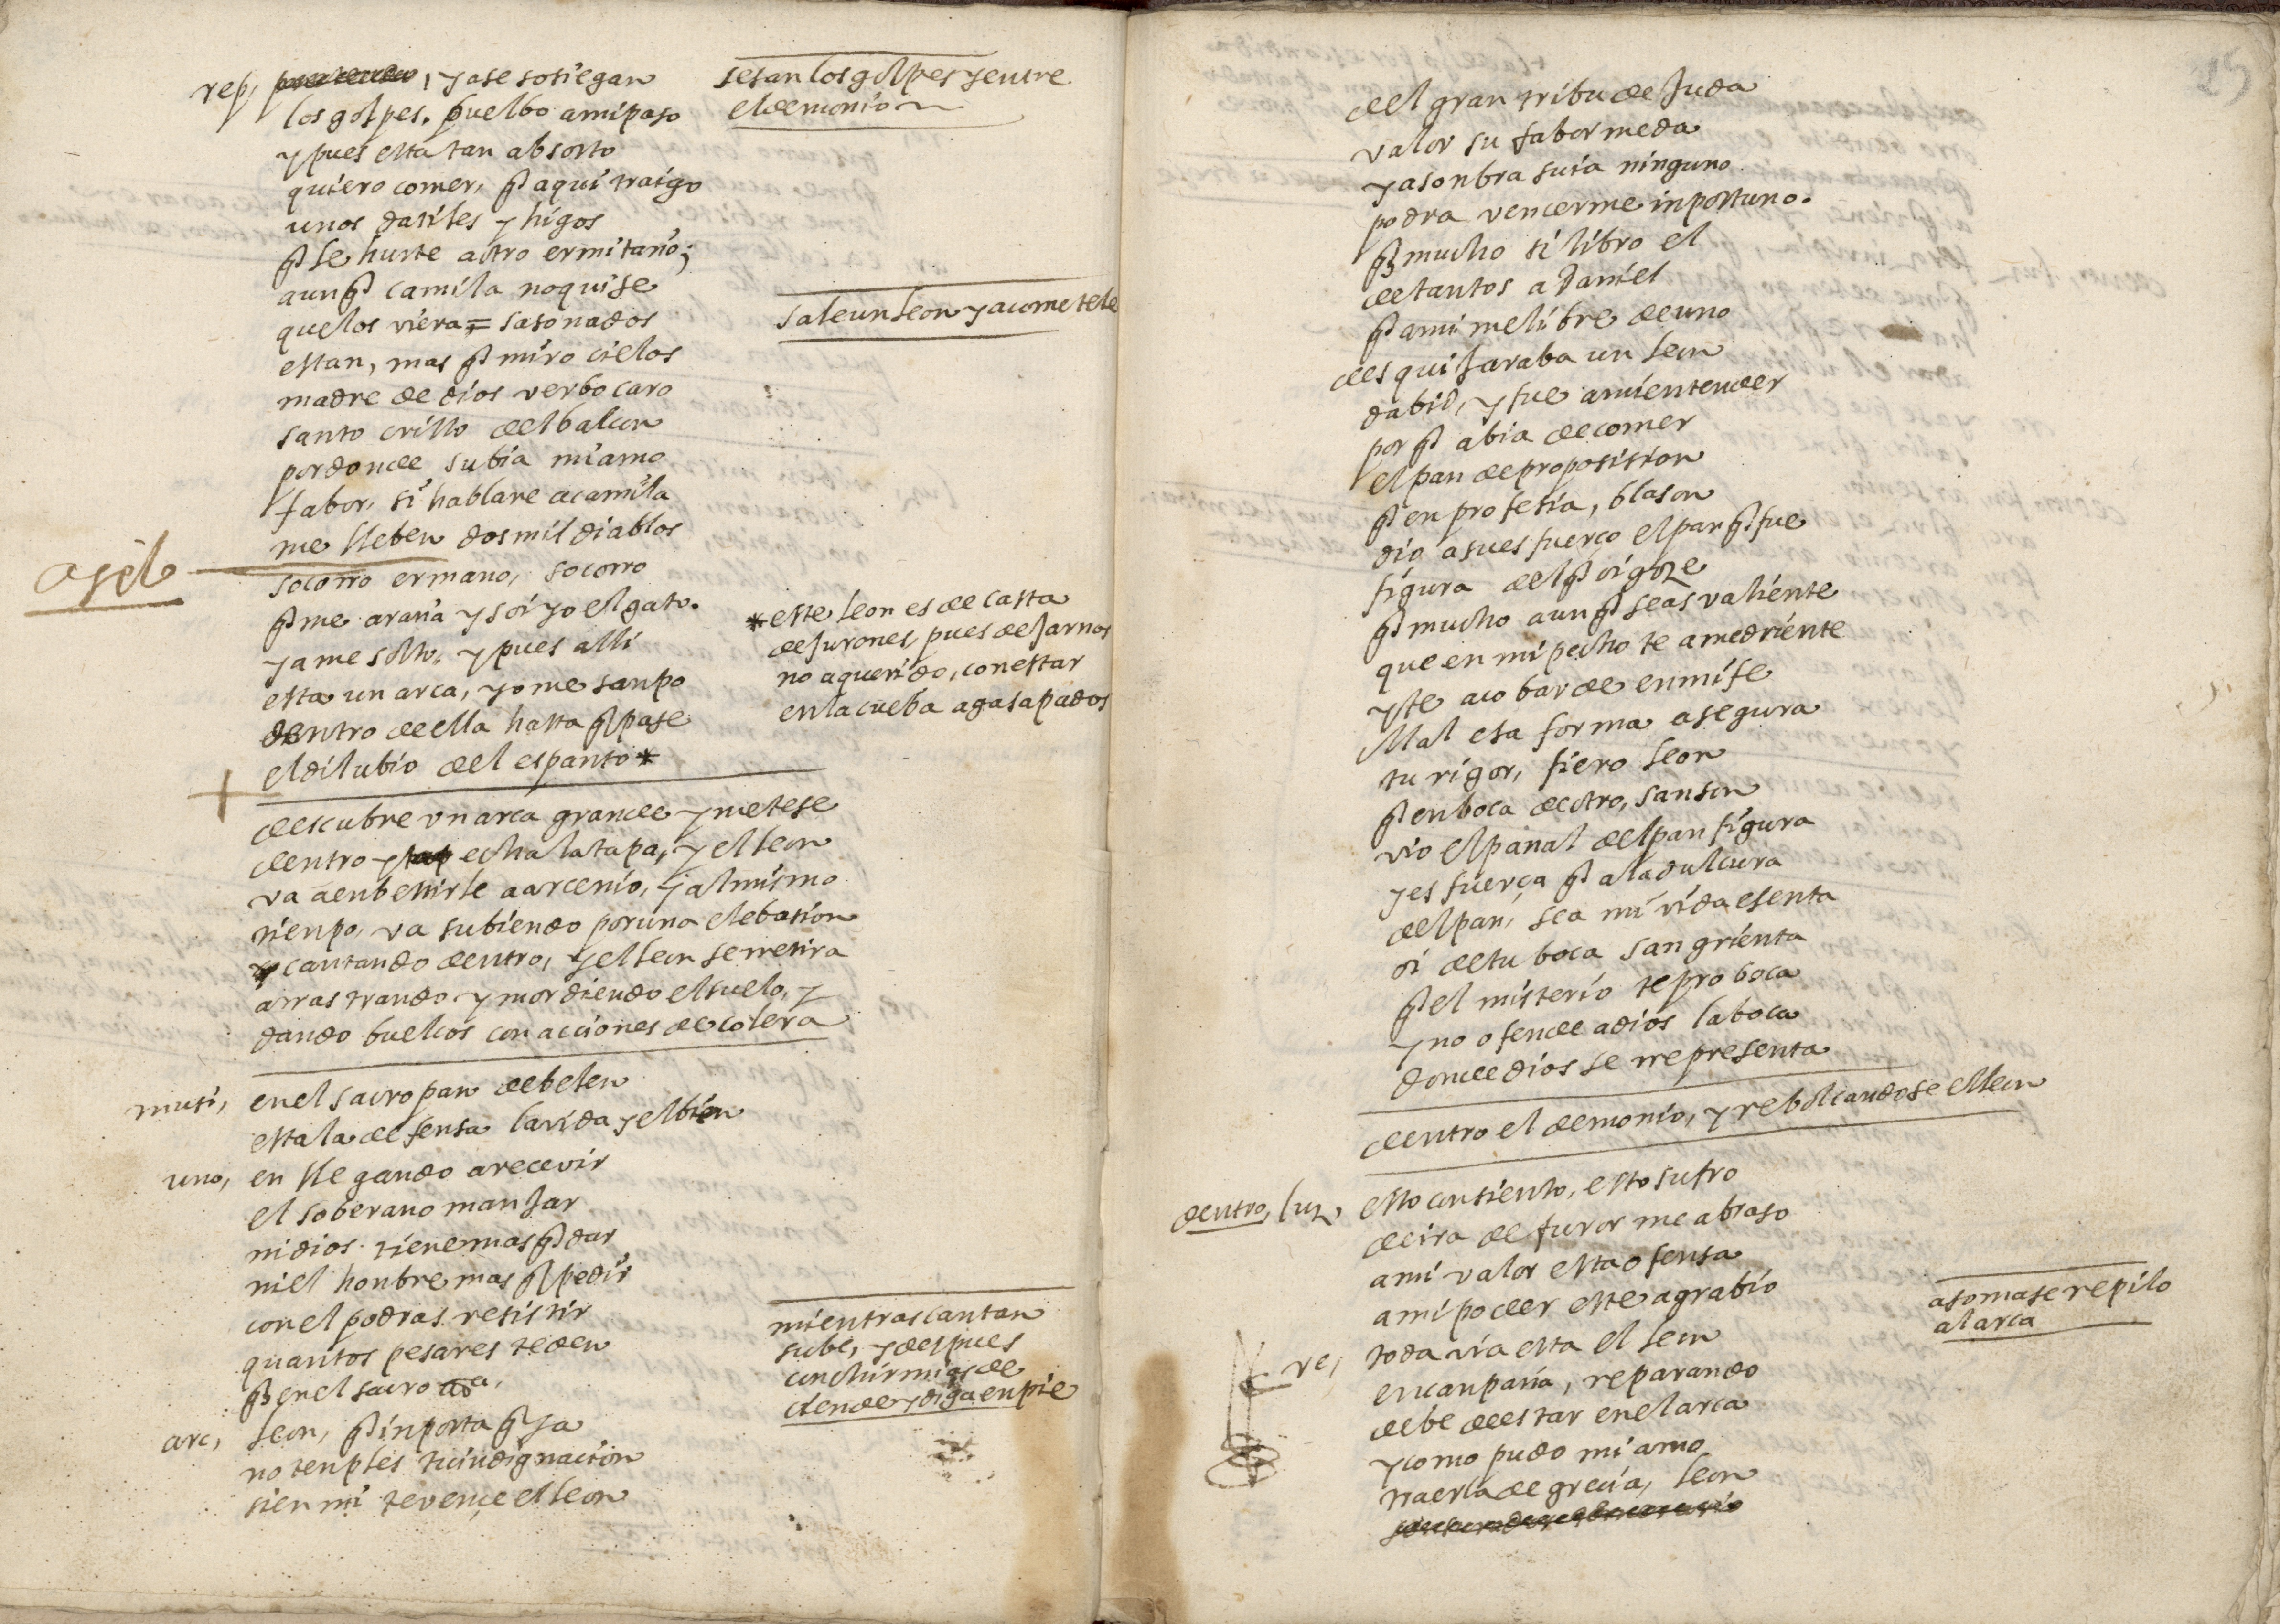 rep, ya se sosiegan
los golpes. buelbo a mi paso
y pues esta tan absorto
quiero comer, q aqui traigo
unos datiles y higos
q le hurte a otro ermitaño;
aunq camila no quise
que los viera = sasonados
estan, mas q miro cielos
madre de dios verbo caro
santo cristo del balcon
por donde subia mi amo
fabor, si hablare a camila
me lleben dos mil diablos
ojo
socorro ermano, socorro
q me araña y soi yo el gato.
ya me solto, y pues alli
esta un arca, yo me sanpo
dentro de ella hasta q pase
el dilubio del espanto *
sesan los golpes y entre
el demonio
sale un leon y acometele
* este leon es de casta
de hurones, pues dejarnos
no a querido, con estar
en la cueba agasapados
descubre un arca grande y metese
dentro y echa la tapa, y el leon
va a enbestirle a arcenio, y al mismo
tienpo, va subiendo por una elebasion
y cantando dentro, y el leon se rretira
arrastrando y mordiendo el suelo, y
dando buelcos con acciones de colera
musi, en el sacro pan de belen
esta la defensa la vida y el bien
uno, en llegando a recevir
el soberano manjar
ni dios tiene mas q dar
ni el honbre mas q pedir
con el podras resistir
quantos pesares te den
q en el sacro
mientras cantan
sube, y despues
con chirmias de
ciende y diga en pie
arc, leon, q inporta q ya
no tenples tu indignacion
si en mi te vençe el leon
del gran tribu de Juda
valor su fabor me da
y a sonbra suia ninguno
podra vencerme inportuno.
q mucho si libro el
de tantos a Daniel
q a mi me libre de uno
desquijaraba un leon
dabid, y fue a mi entender
por q abia de comer
el pan de proposision
q en profesia, blason
dio a su esfuerço el pan q fue
figura del q oi goze
q mucho aunq seas valiente
que en mi pecho te amedriente
y te acobarde en mi fe
Mal esa forma asegura
tu rigor, fiero leon
q en boca de otro, sanson
vio el panal del pan figura
y es fuerça q a la dulçura
del pan, sea mi vida esenta
oi de tu boca sangrienta
q el misterio te proboca
y no ofende a dios la boca
donde dios se rrepresenta
dentro el demonio, y rebolcandose el leon
dentro, luz, esto consiento, esto sufro
de ira de furor me abraso
a mi valor esta ofensa
a mi poder este agrabio
asomase repilo
al arca
re, toda via esta el leon
en canpaña, reparando
debe de estar en el arca
y como pudo mi amo
traerla de grecia, leon